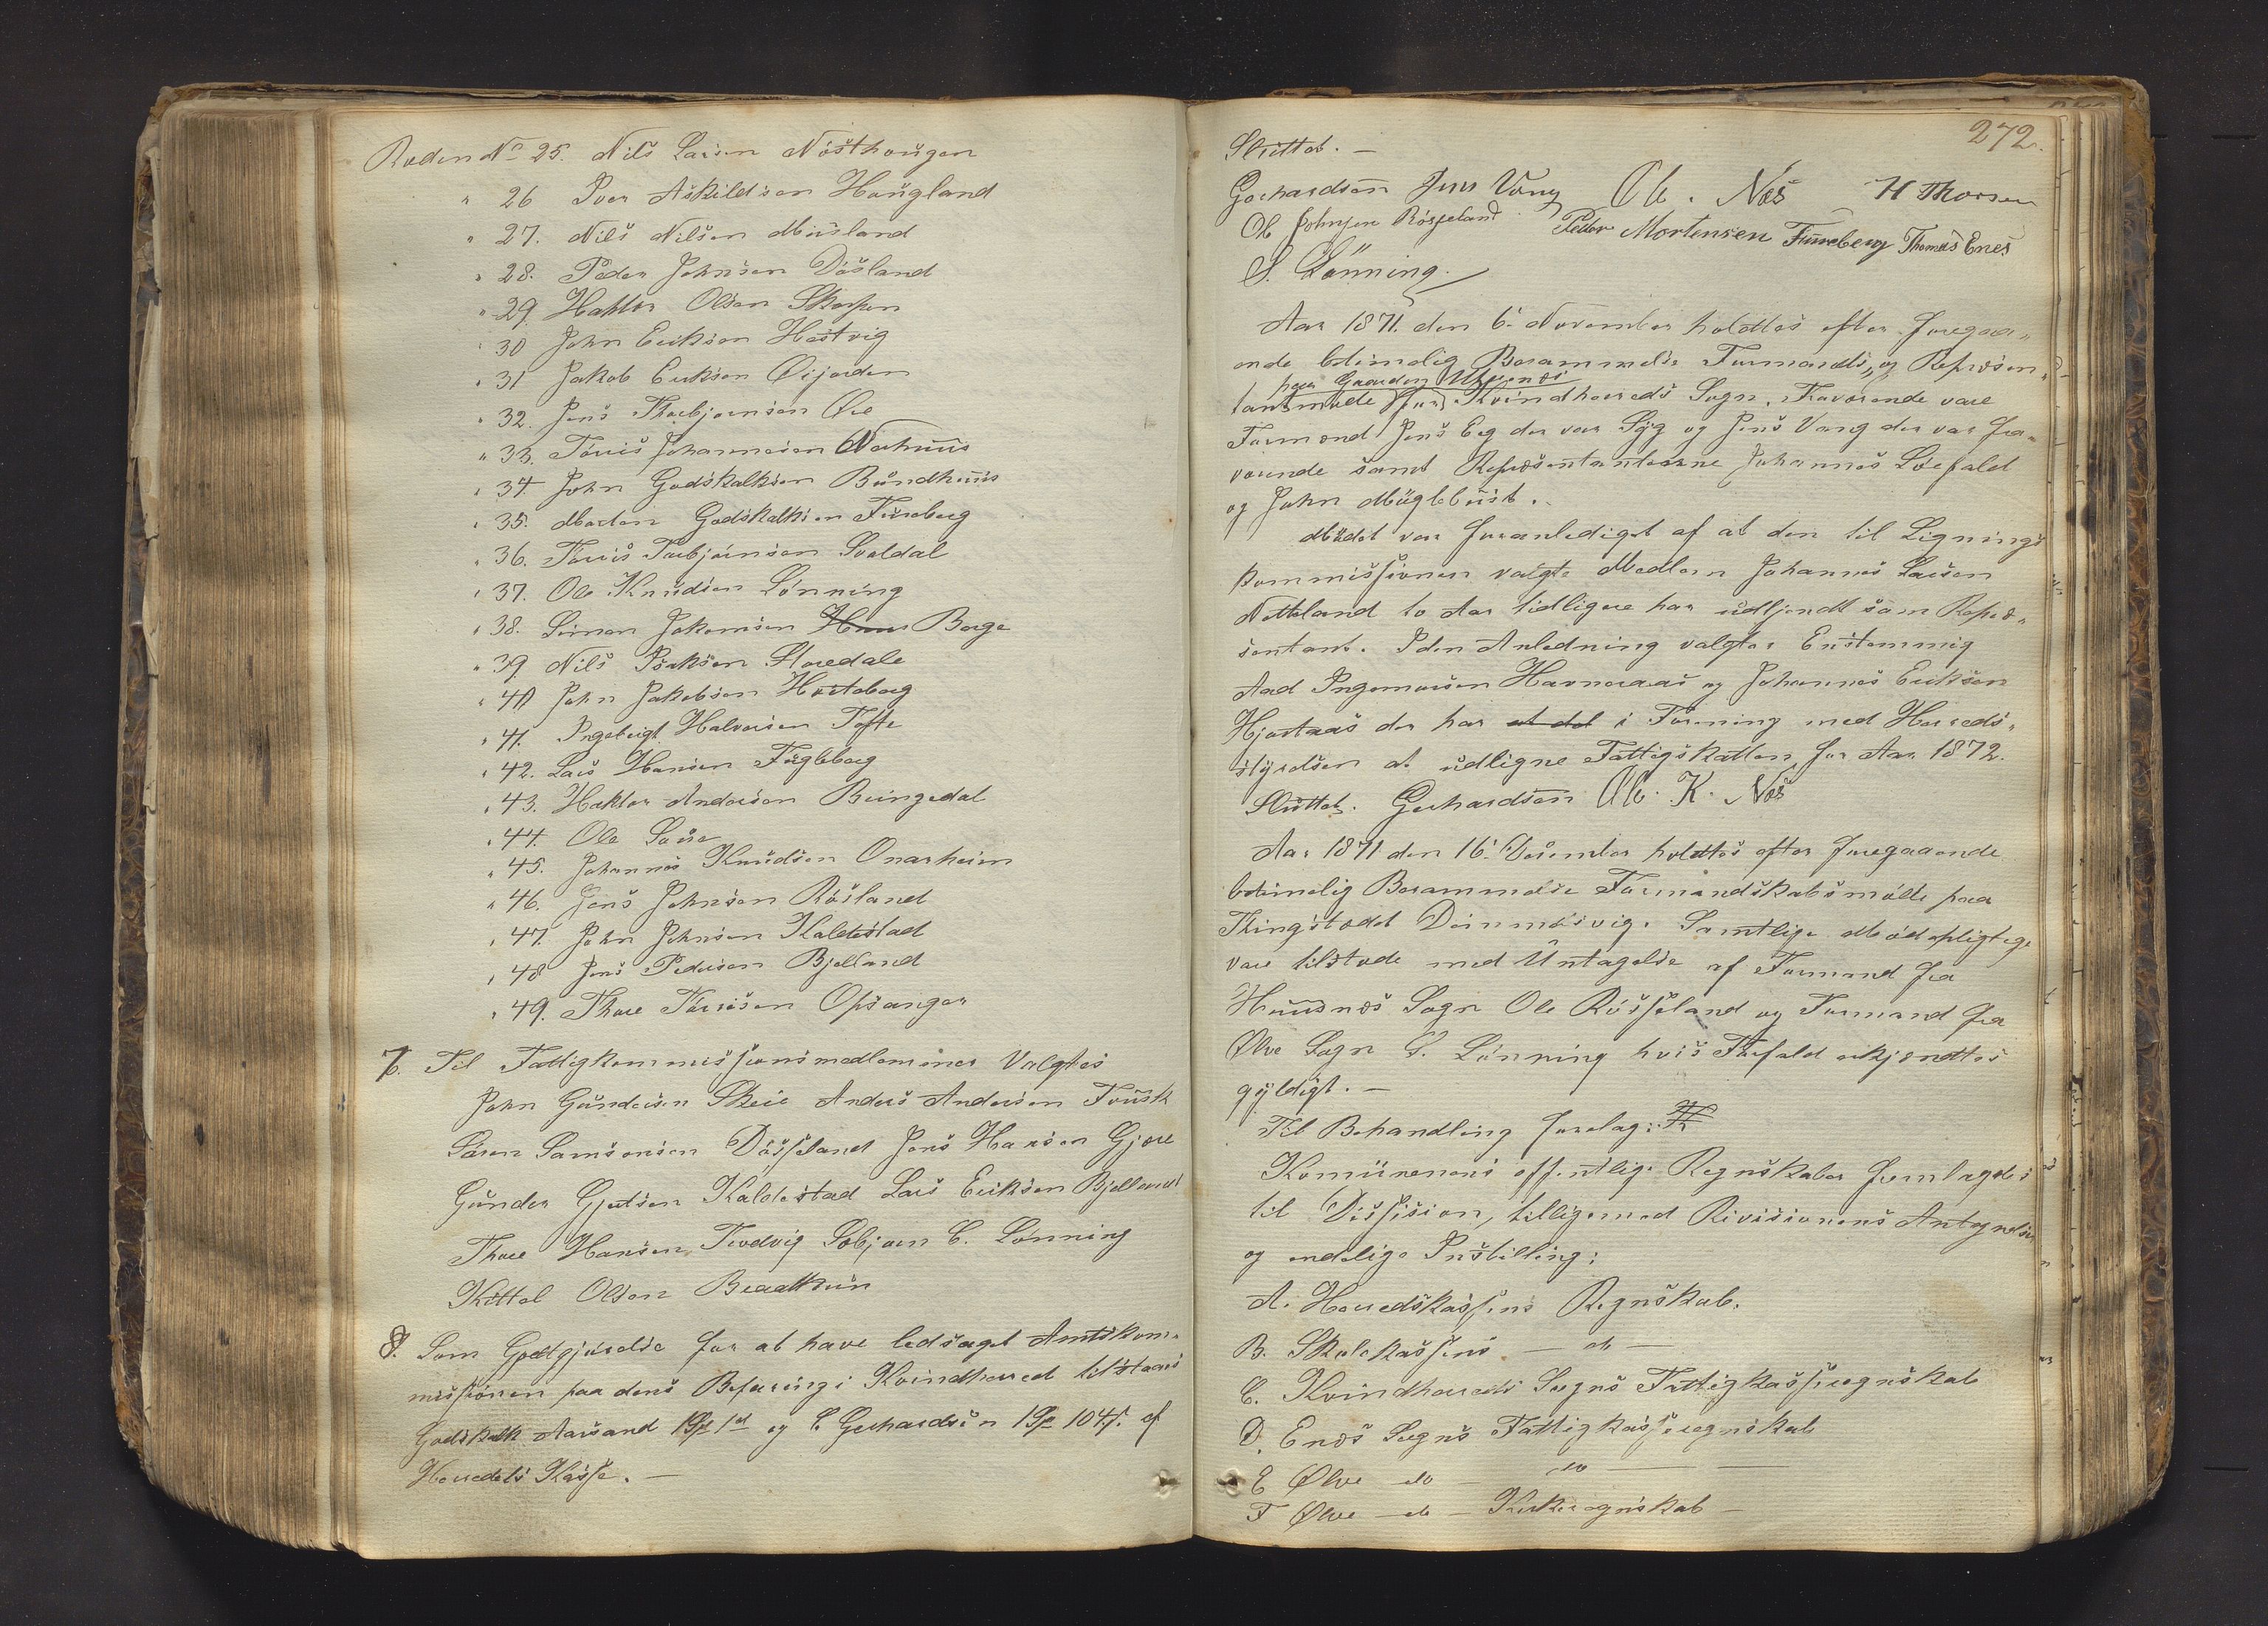 Roden No 25. Nils Larsen Nøsthougen
" 26 Iver Askildsen Hougland
" 27. Nils Nilsen Muusland
" 28. Peder Johnsen Døsland
" 29. Haktor Olsen Skorpen
" 30 John Eriksen Hestvig
" 31 Jakob Eriksen Øijorden
" 32. Jens Thorbjørnsen Øie
" 33. Tørris Johannesen Nerhuus
" 34 John Godskalksen Bundhuus
" 35. Morten Godskalksen Fureberg
" 36. Tørris Torbjørnsen Svoldal
" 37. Ole Knudsen Lønning
" 38. Simon Jokumsen Berge
" 39 Nils Isaksen Floredale
" 40 John Jakobsen Hviteberg
" 41. Ingebrigt Halvorsen Tofte
" 42. Lars Hansen Fugleberg
" 43. Haktor Andersen Bringedal
" 44. Ole
" 45. Johannes Knudsen Onarheim
" 46. Jens Johnsen Røsland
" 47. John Johnsen Kaldestad
" 48 Jens Pedersen Bjelland
" 49. Thore Tørrisen Opsanger
7. Til Fattigkommissionsmedlemmer Valgtes
John Gundersen Skeie Anders Andersen Fousk
Søren Samsonsen Døssland Jens Hansen Gjere
Gunder Gjertsen Kaldestad Lars Eriksen Bjelland
Thore Hansen Trodvig Solvjørn C. Lønning
Kittel Olsen Bradthun
8. Som Godtgjørelse for at have ledsaget Amtskom-
missionen paa dens Befaring i Kvindherred tilstaaes
Godskalk Aarsand 1 Sp 1 ort og C. Gerhardsen 1 Sp 104 s. af
Herredets Kasse. —
272.
Sluttet. —
Gerhardsen Jens Vang Ole. Næs H Thorsen
Ole Johnsen Røsseland Peder Mortensen Fureberg Thomas Enes
S. Lønning.
Aar 1871. den 6. November holdtes efter foregaa-
ende betimelig Berammelse Formands- og Repræsen-
paa Gaarden
tantmøde for Kvindherreds Sogn. Fraværende vare
Formænd Jens Eeg der var Syg og Jens Vang der var fra-
værende samt Repræsentanterne Johannes Løefald
og John Myglebust.
Mødet var foranlediget af at den til Lignings
kommissionen valgte Medlem Johannes Larsen
Netteland to Aar tidligere har udtjendt som Repræ-
sentant. I den Anledning valgtes Enstemmig
Aad Ingemarsen Havneraas og Johannes Eriksen
Hjortaas der har at del i Forening med Herreds-
styrelsen at udligne Fattigskatten for Aar 1872.
Sluttet. Gerhardsen Ole. K. Næs
Aar 1871 den 16. Desember holdtes efter foregaaende
betimelig Berammelse Formandskabsmøde paa
Thingstedet Dimmelsvig. Samtlige Mødepligtige
vare tilstede med Untagelse af Formand fra
Huusnæs Sogn Ole Røsseland og Formand fra
Ølve Sogn S. Lønning hvis Forfald erkjendtes
gyldigt. —
Til Behandling forelag:
Komunenens offentlige Regnskaber fremlagdes
til Dessision, tilligemed Rivisionens Antegnelser
og endelige Instilling:
A. Herredskassens Regnskab.
B. Skolekassens — do —
C. Kvindherreds Sogns Fattigkasseregnskab
D. Enæs Sogns Fattigkasseregnskab
E Ølve — do — do —
F Ølve — do — Kirkeregnskab —